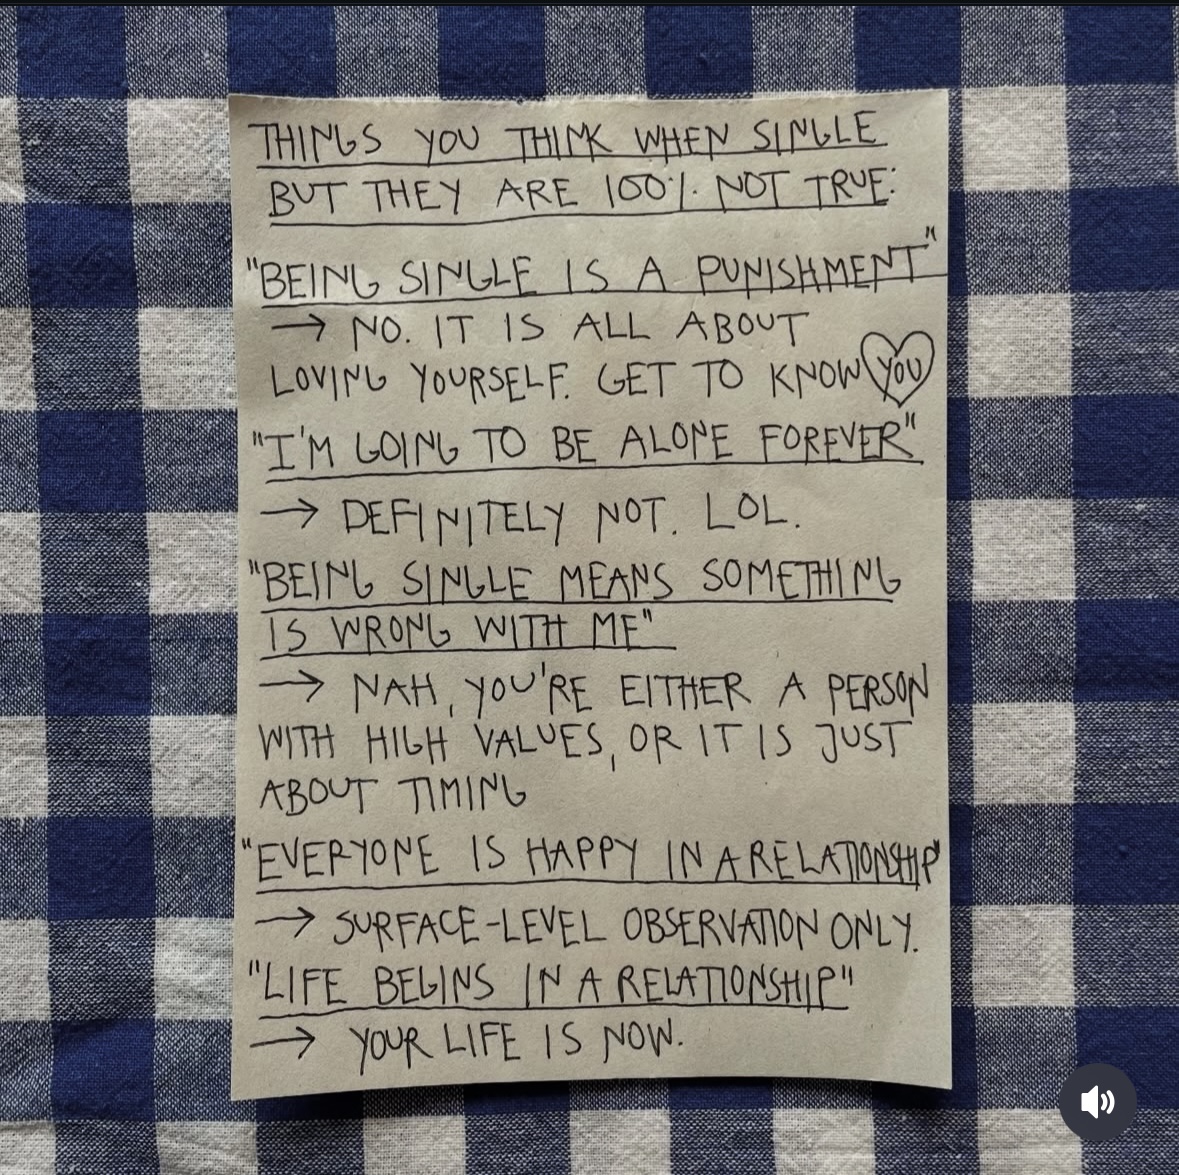 THINGS YOU THINK WHEN SINGLE
BUT THEY ARE 100% NOT TRUE:
"BEING SINGLE IS A PUNISHMENT"
→ NO. IT IS ALL ABOUT
LOVING YOURSELF. GET TO KNOW YOU
"I'M GOING TO BE ALONE FOREVER"
→ DEFINITELY NOT. LOL.
"BEING SINGLE MEANS SOMETHING
IS WRONG WITH ME"
→ NAH, YOU'RE EITHER A PERSON
WITH HIGH VALUES, OR IT IS JUST
ABOUT TIMING
"EVERYONE IS HAPPY IN A RELATIONSHIP"
→ SURFACE-LEVEL OBSERVATION ONLY.
"LIFE BEGINS IN A RELATIONSHIP"
→ YOUR LIFE IS NOW.